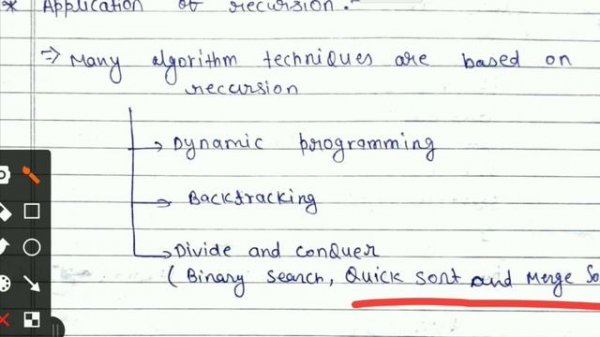 * Application of recursion :-
⇒ Many algorithm techniques are based on
recursion
→ Dynamic programming
→ Backtracking
→ Divide and conquer
( Binary search, Quick sort and Merge So